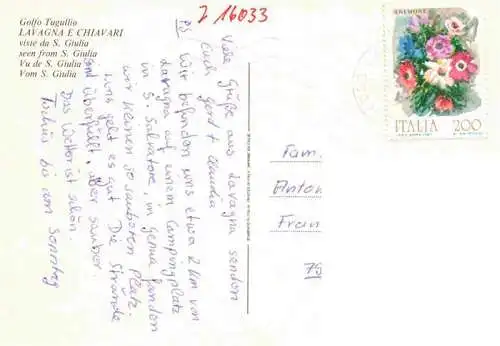 Golfo Tugullio
LAVAGNA E CHIAVARI
viste da S. Giulia
seen from S. Giulia
Vu de S. Giulia
Vom S. Giulia
J 16033
ANEMONE
ITALIA 200
Viele Grüße aus Lavagna senden
Euch Gerd + Claudia
PS Wir befinden uns etwa 2 km von
Lavagna auf einem Campingplatz
in S. Salvatore, in Genua fanden
wir keinen so sauberen Platz.
Uns geht es gut. Die Strände
sind überfüllt, aber sauber.
Das Wetter ist schön.
Tschüs bis am Sonntag
Fam.
Anton
Fran
79